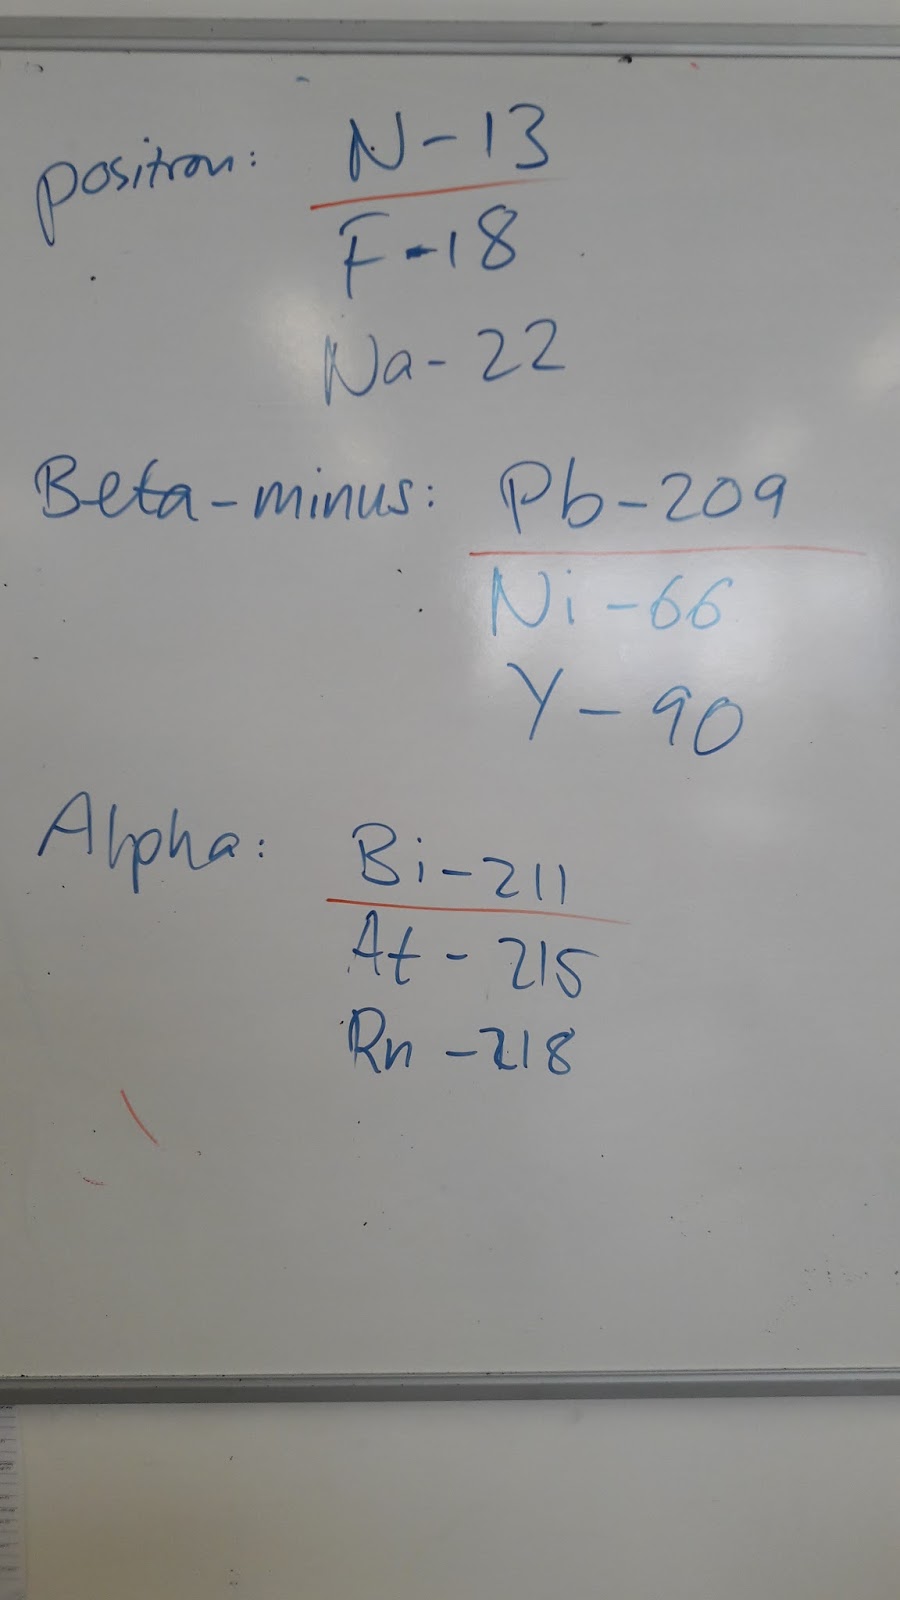 positron: N-13
F-18
Na-22
Beta-minus: Pb-209
Ni-66
Y-90
Alpha: Bi-211
At-215
Rn-218